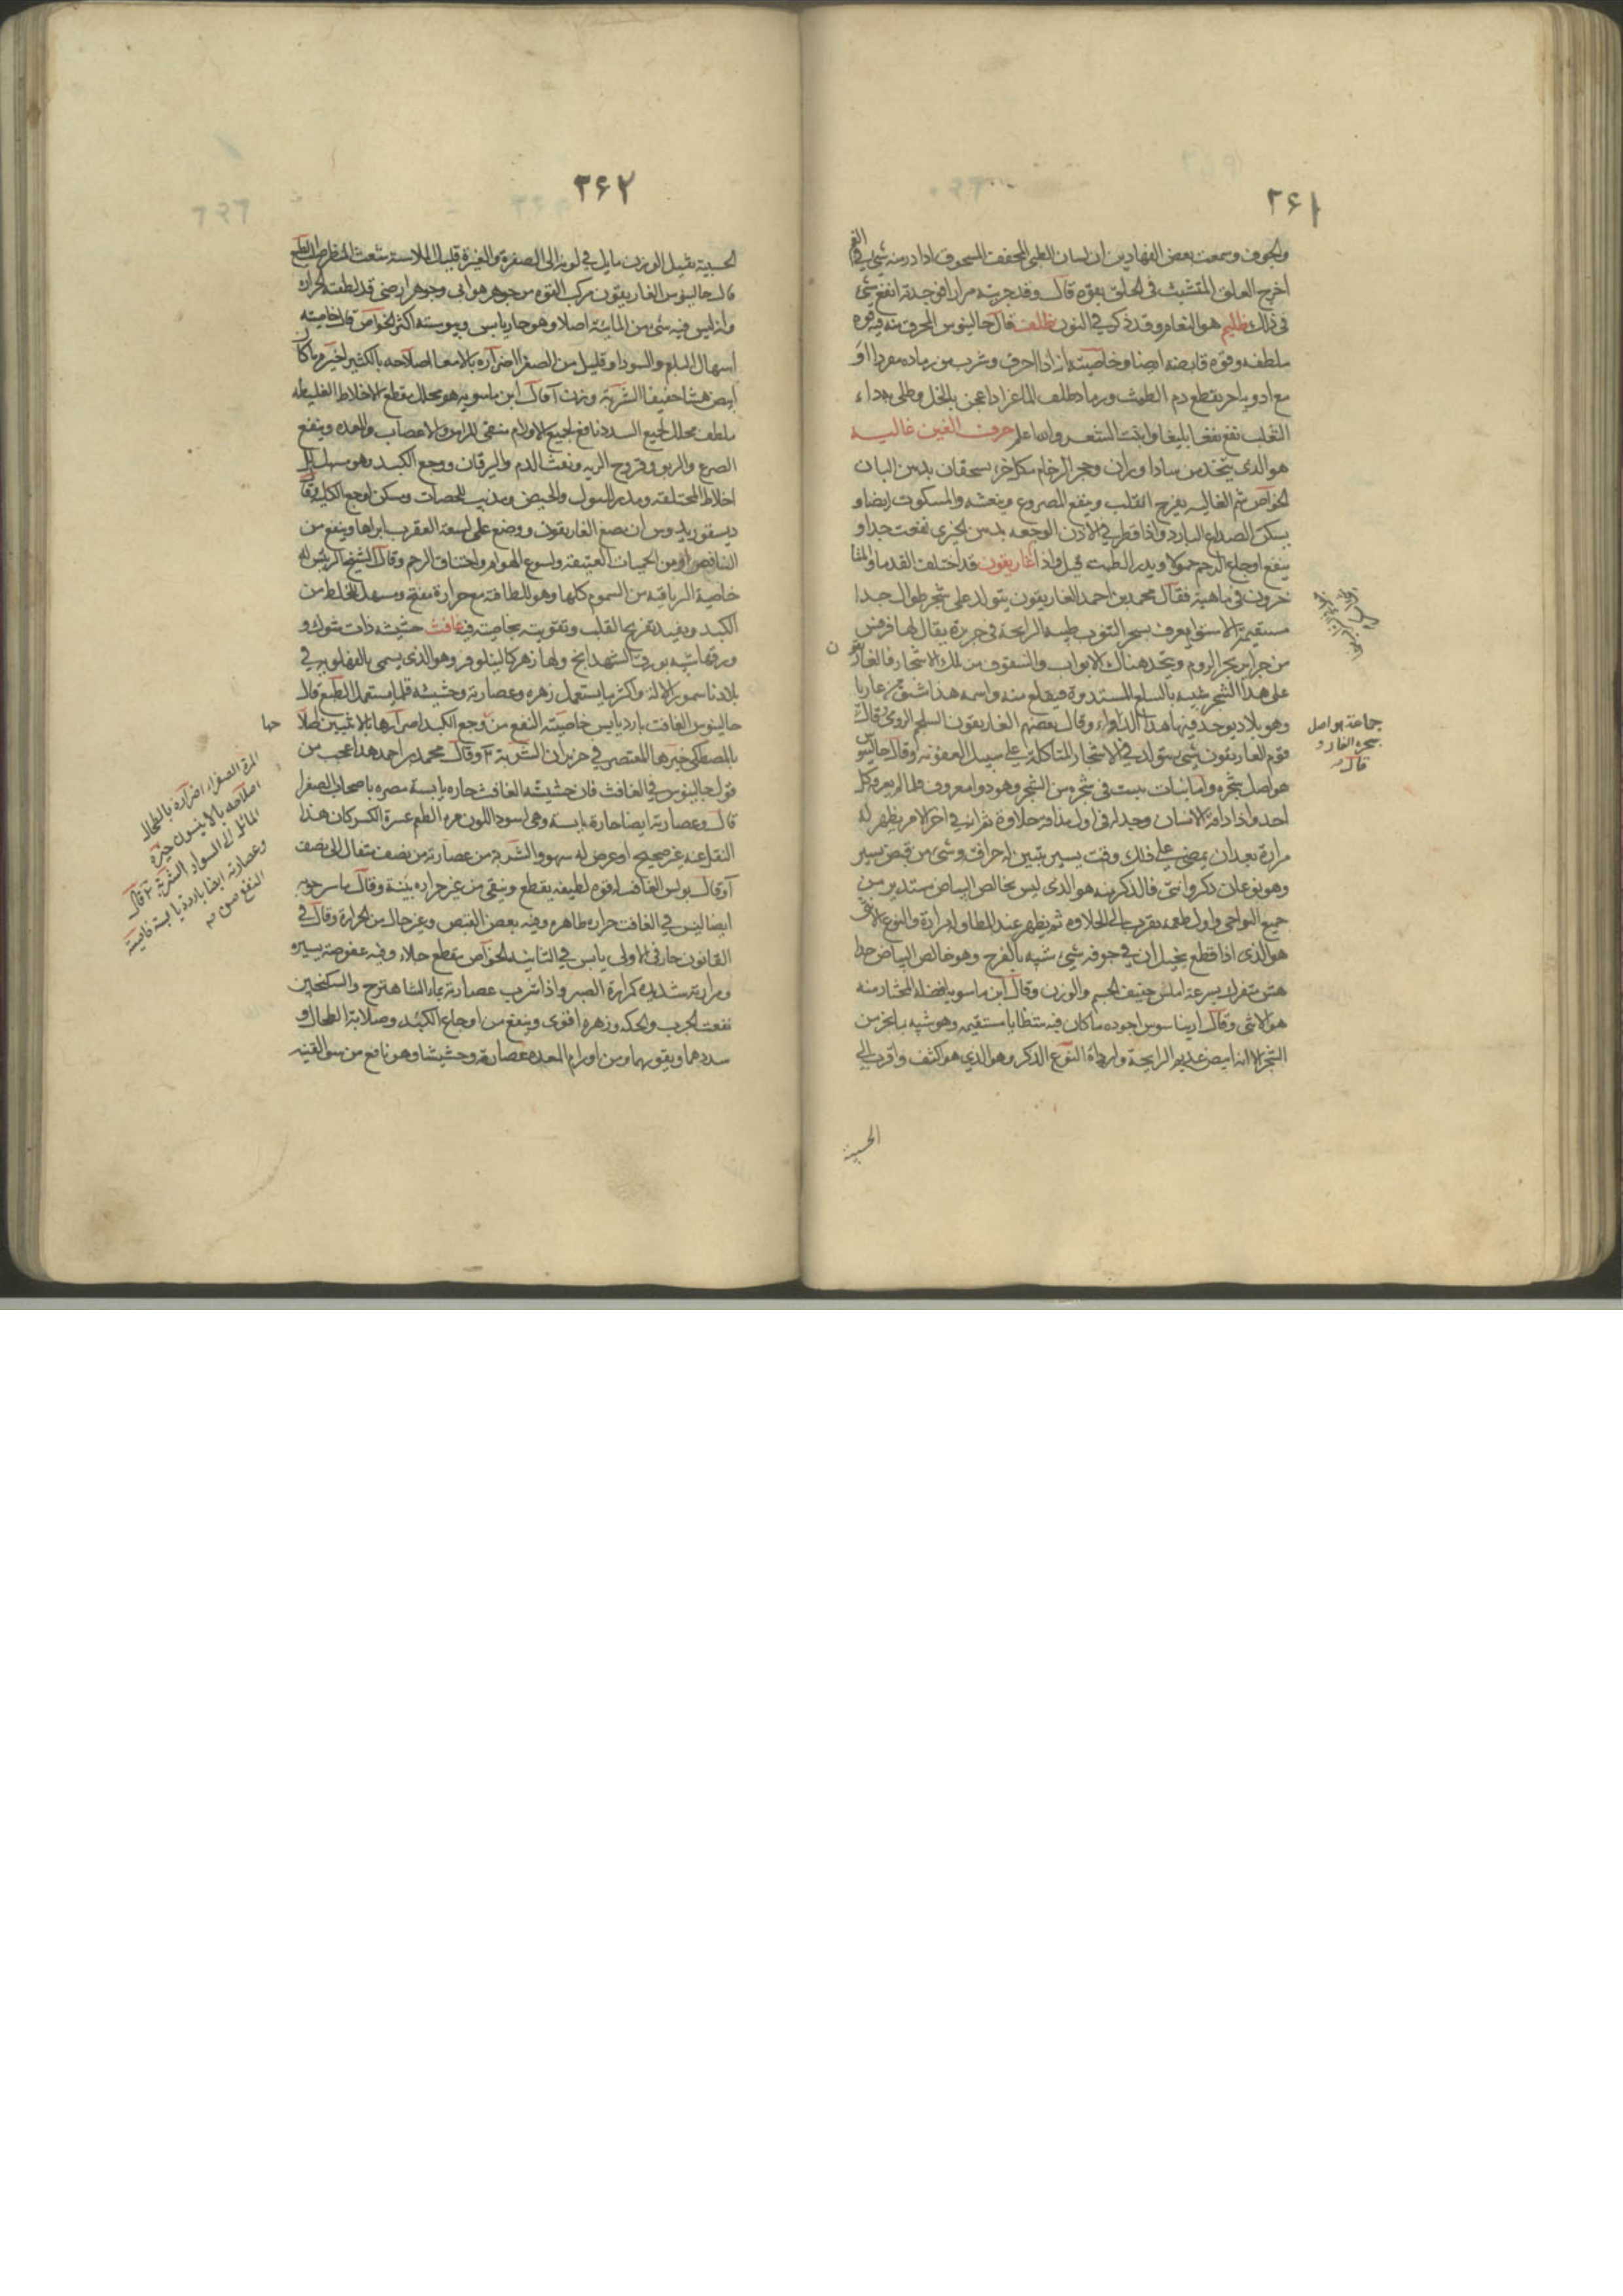 ٢۶١
والجوف وسمعت بعض الفهادين ان لسان الظبي المجفف المسحوق اذا در منه شي في الفم
اخرج العلق المتشبث في الحلق بقوه قال وقد جربته مرارا فوجدته انفع شي
في ذلك ظليم هو النعام وقد ذكر في النون ظلف قال جالينوس المحرق منه فيه قوه
ملطفه وقوه قابضه ايضا وخاصيته انه اذا احرق وشرب من رماده مفردا او
مع ادويه اخر يقطع دم الطمث ورماد ظلف الماعز اذا عجن بالخل وطلي به داء
الثعلب نفع نفعا بليغا وانبت الشعر والله اعلم حرف الغين غاليه
هو الذي يتخذ من
الخواص شم الغاليه يفرح القلب وينفع المصروع وينعشه والمسكوت ايضا و
يسكن الصداع البارد واذا قطر في الاذن الوجعه بدهن الخيري نفعت جدا و
ينفع اوجاع الرحم حمولا ويدر الطمث غاريقون قد اختلف القدما والمتا
خرون في ماهيته فقال محمد بن احمد الغاريقون يتولد على شجر طوال جدا
مستقيمة الاستوا يعرف بشجر التنوب طيبة الرايحة في جزيرة يقال لها
من جزاير بحر الروم ويتخذ هناك الابواب والسقوف من تلك الاشجار فالغاريقون
على هذا الشجر شبيه بالسلع المستديرة فيقلع منه واسمه هذا مشتق من غاريا
وهو بلاد يوجد فيها هذا الدواء وقال بعضهم الغاريقون السلجم الرومي وقال
قوم الغاريقون شي يتولد في الاشجار المتاكلة على سبيل العفونة وقال جالينوس
هو اصل شجره وانما نبات ينبت في شجره من الشجر وهو دوا معروف
احد واذا ذاقه الانسان وجد له في اول مذاقه حلاوة ثم انه في اخر الامر يظهر له
مرارة بعد ان يمضي على ذلك وقت يسير تبين له حرافه وشي من قبض يسير
وهو نوعان ذكر وانثى فالذكر منه هو الذي ليس بخالص البياض مستدير من
جميع النواحي واول طعمه يقرب الى الحلاوه ثم يظهر عند المطاوله مرارة والنوع الانثى
هو الذي اذا قطع يخيل ان في جوفه شي شبيه بالفرج وهو خالص البياض جدا
هش متفرك بسرعة املس خفيف الجسم والوزن وقال ابن ماسويه افضله المختار منه
هو الانثى وقال اريباسوس اجوده ما كان فيه شظايا مستقيمه وهو شبيه
الشجر الا انه ابيض عديم الرايحة واردأة النوع الذكر وهو الذي هو اكثف واقرب الى
الخشبية
جماعة هو اصل
شجرة الغار و
قال
٢۶٢
الخشبية ثقيل الوزن مايل في لونه الى الصفرة والغبرة قليل الملاسة شعث المنظر
قال جالينوس الغاريقون مركب القوه من جوهر هوايي وجوهر ارضي قد لطفته الحراره
وانه ليس فيه شي من المائية اصلا وهو حار يابس ويبوسته اكثر الخواص قال خاصيته
اسهال البلغم والسودا وقليل من الصفرا اضراره بالامعا اصلاحه بالكثيرا خيره ما كان
ابيض هشا خفيفا الشربة وزن آ قال ابن ماسويه هو محلل مقطع للاخلاط الغليظه
ملطف محلل لجميع السدد نافع لجميع الاورام منقي للراس والاعصاب والمعده وينفع
الصرع والربو وقروح الريه ونفث الدم واليرقان ووجع الكبد وهو مسهل
اخلاط المختلفه ومدر البول والحيض ومذيب للحصات ومسكن لوجع الكلي وقال
ديسقوريدوس ان مضغ الغاريقون ووضع على لسعة العقرب ابراها وينفع من
النافض ومن الحميات العتيقه ولسوع الهوام واختناق الرحم وقال الشيخ الرئيس له
خاصية الترياقيه من السموم كلها وهو للطافته مع حرارة مفتح ومسهل للخلط من
الكبد ويفيد تفريح القلب وتقويته بخاصيته فيه غافث حشيشه ذات شوك و
ورقها شبيه بورق الشهدانج ولها زهر كالنيلوفر وهو الذي يسمى في
بلادنا واكثر ما يستعمل زهره وعصارته وحشيشه قلما يستعمل الطبع قال
جالينوس الغافث بارد يابس خاصيته النفع من وجع الكبد اضرارها بالانثيين اصلاحها
بالمصطكي خيرها المعتصر في حزيران الشربة ٢ وقال محمد بن احمد هذا عجب من
قول جالينوس في الغافث فان حشيشة الغافث حاره يابسة مضره باصحاب الصفرا
قال وعصارته ايضا حارة يابسة وهي اسود اللون مره الطعم عسرة الكسر كان هذا
النقل عنه غير صحيح او عرض له سهو والشربة من عصارته من نصف مثقال الى نصف
آ وقال بولس الغافث له قوه لطيفه يقطع وينقي من غير حراره بينة وقال ماسرجويه
ايضا ليس في الغافث حراره ظاهره وفيه بعض القبض وغير خال من الحرارة وقال في
القانون حار في الاولى يابس في الثانيه الخواص مقطع جلاء وفيه عفوصة يسيره
ومرارته شديده كمرارة الصبر واذا شرب عصارته بماء الشاهترج والسكنجبين
نفعت الجرب والحكه وزهره اقوى وينفع من اوجاع الكبد وصلابة الطحال و
سددهما ويقويهما ومن اورام المعده عصارته وحشيشا وهو نافع من سو القنيه
المرة الصفرا اضراره بالطحال
اصلاحه بالانيسون خيره
المائل الى السواد الشربة ٢ قال
وعصارته ايضا باردة يابسة خاصيته
النفع من